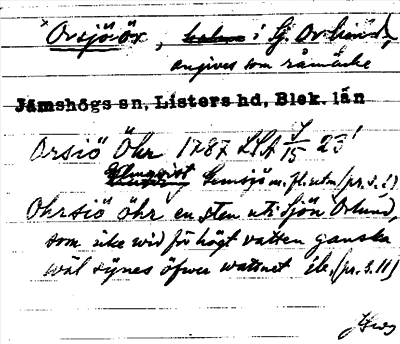 Orsjö ör, i Sj. Orlund,
angives som råmärke
Jämshögs sn, Listers hd, Blek. län
Orsiö Öhr 1787 LSA J/15 23'
Holmqvist Gemsjö m. fl. utm (pr. s. 6)
Ohrsiö öhr en sten uti Sjön Orlund,
som icke wid för högt vatten ganska
wäl synes öfwer watnet ib. (pr. s. 11)